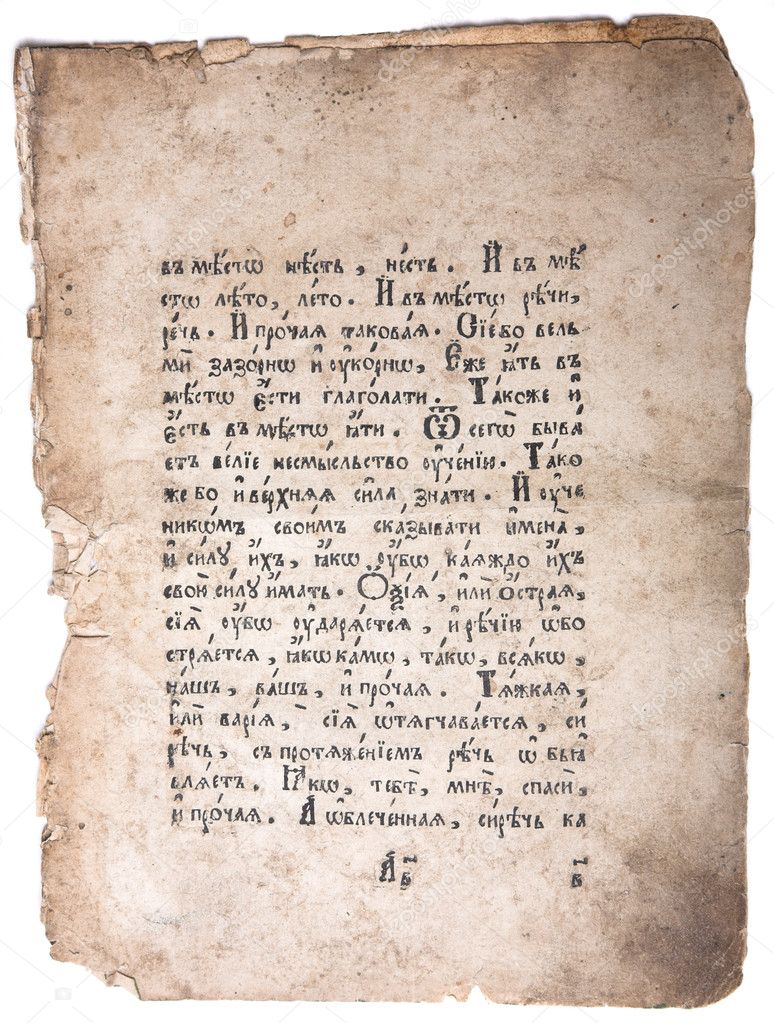 въ мѣ́стѡ нѣ́сть, не́сть. И҆ въ мѣ́
стѡ лѣ́то, ле́то. И҆ въ мѣ́стѡ рѣ́чи,
ре́чь. И҆ про́чая такова́я. Сїе́ бо вель
мѝ зазо́рнѡ и҆ ᲂу҆ко́рнѡ, Е҆́же ꙗ҆́ть въ
мѣ́стѡ є҆́сти глаго́лати. Та́коже и҆
є҆́сть въ мѣ́стѡ ꙗ҆́ти. Ѿ сегѡ̀ быва́
етъ ве́лїе несмы́сльство ᲂу҆че́нїю. Та́ко
же бо и҆ ве́рхняя си́ла, зна́ти. И҆ ᲂу҆че
никѡ́мъ свои́мъ ска́зывати и҆мена̀,
и҆ си́лу и҆́хъ, ꙗ҆́кѡ ᲂу҆́бѡ кая́ждо и҆́хъ
свою̀ си́лу и҆́мать. Ѻ҆ѯі́я, и҆лѝ ѻ҆́страя,
сїѧ̀ ᲂу҆́бѡ ᲂу҆даря́ется, и҆ рѣ́чїю ѡ҆бо
стря́ется, ꙗ҆́кѡ ка́мѡ, та́кѡ, вся́кѡ,
на́шъ, ва́шъ, и҆ про́чая. Тя́жкая,
и҆лѝ варі́я, сїѧ̀ ѡ҆тягчава́ется, си
рѣ́чь, съ протяже́нїемъ рѣ́чь ѡ҆бьи҆
вля́етъ. Ꙗ҆́кѡ, тебѣ̀, мнѣ̀, спасѝ,
и҆ про́чая. А҆ ѡ҆блече́нная, си́рѣчь ка
А҆в҃ в҃
depositphotos